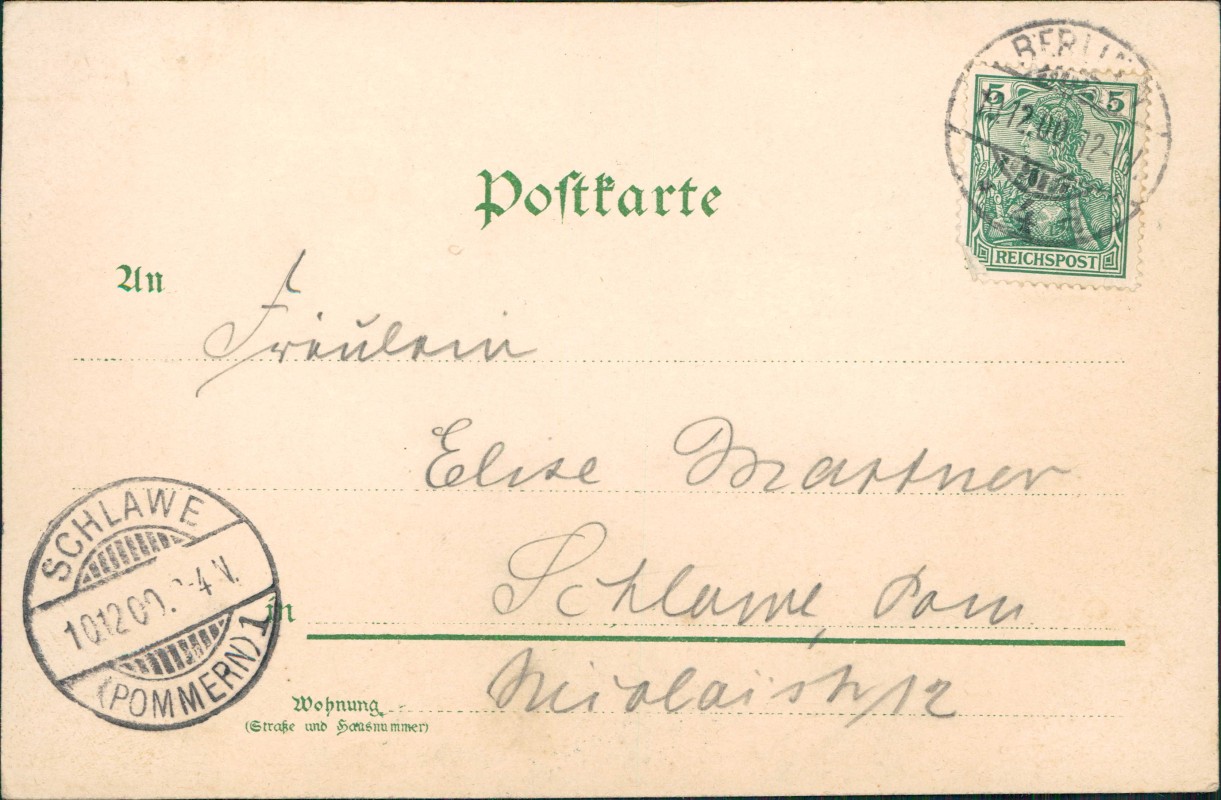 BERLIN
5 5
12.00. 12-1V.
REICHSPOST
Poſtkarte
An
Fräulein
Elise Marttner
Schlawe, Pom
SCHLAWE
10 12 00. -4 V.
(POMMERN) 1
in
Nicolaistr 12
Wohnung
(Straße und Hausnummer)